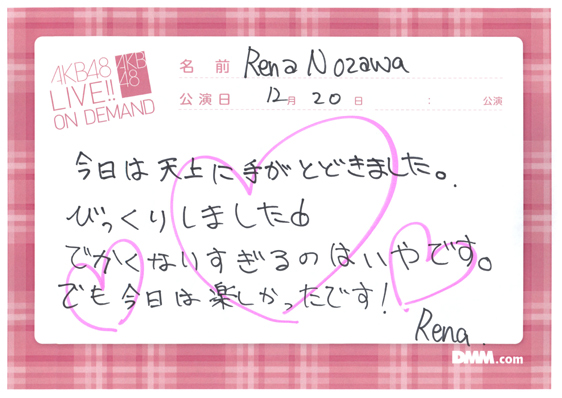 AKB48
LIVE!!
ON DEMAND
AKB
48
名 前 Rena Nozawa
公演日 12月 20日 : 公演
今日は天上に手がとどきました。
びっくりしました
でかくないすぎるのはいやです。
でも今日は楽しかったです!
Rena.
DMM.com